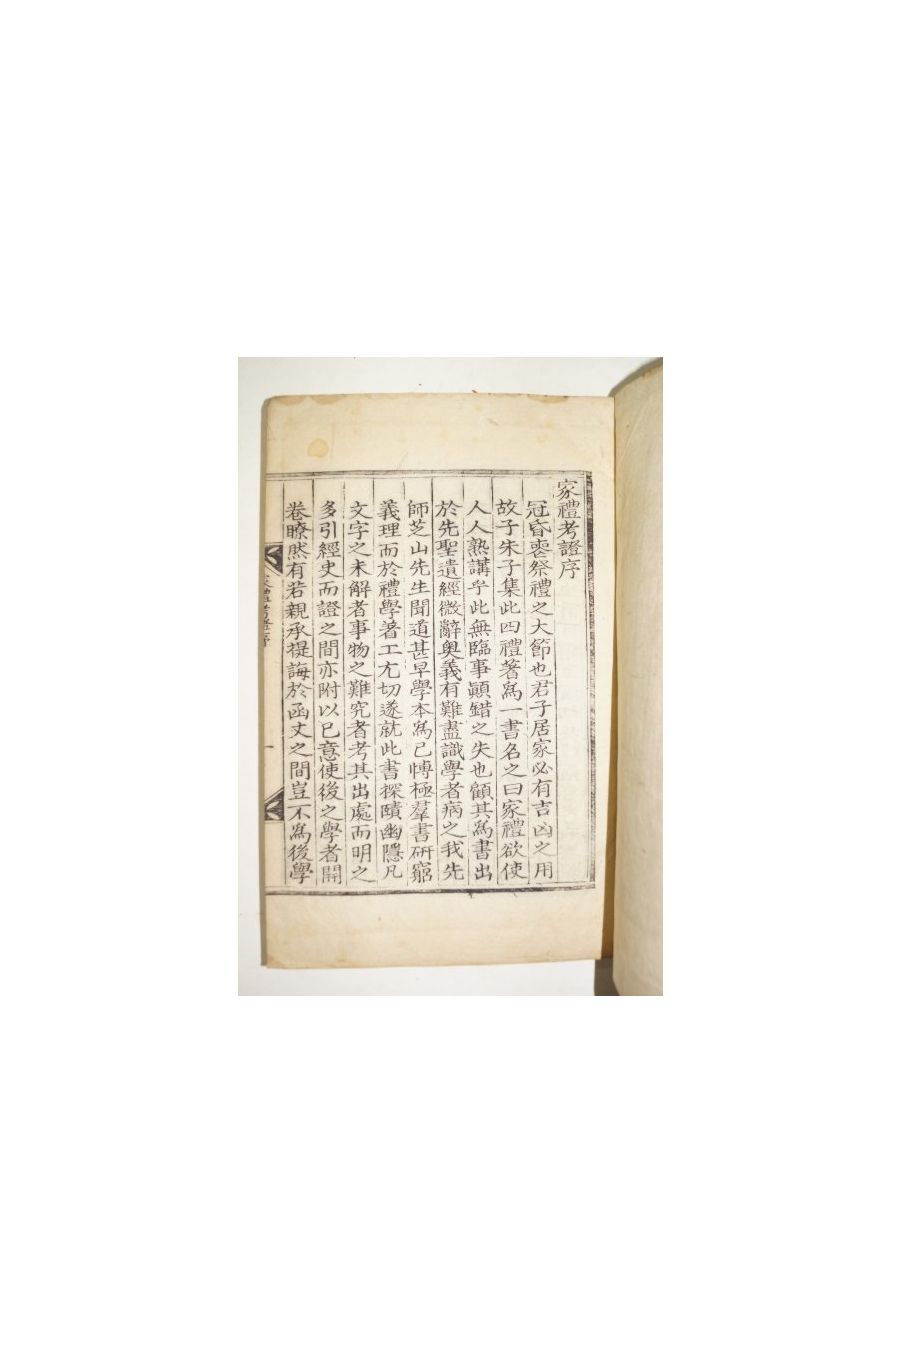 家禮考證序
冠昏喪祭禮之大節也君子居家必有吉凶之用
故子朱子集此四禮著爲一書名之曰家禮欲使
人人熟講乎此無臨事顚錯之失也顧其爲書出
於先聖遺經微辭奥義有難盡識學者病之我先
師芝山先生聞道甚早學本爲己博極羣書研窮
義理而於禮學著工尤切遂就此書探賾幽隱凡
文字之未解者事物之難究者考其出處而明之
多引經史而證之間亦附以己意使後之學者開
卷瞭然有若親承提誨於函丈之間豈不爲後學
家禮考證序
一